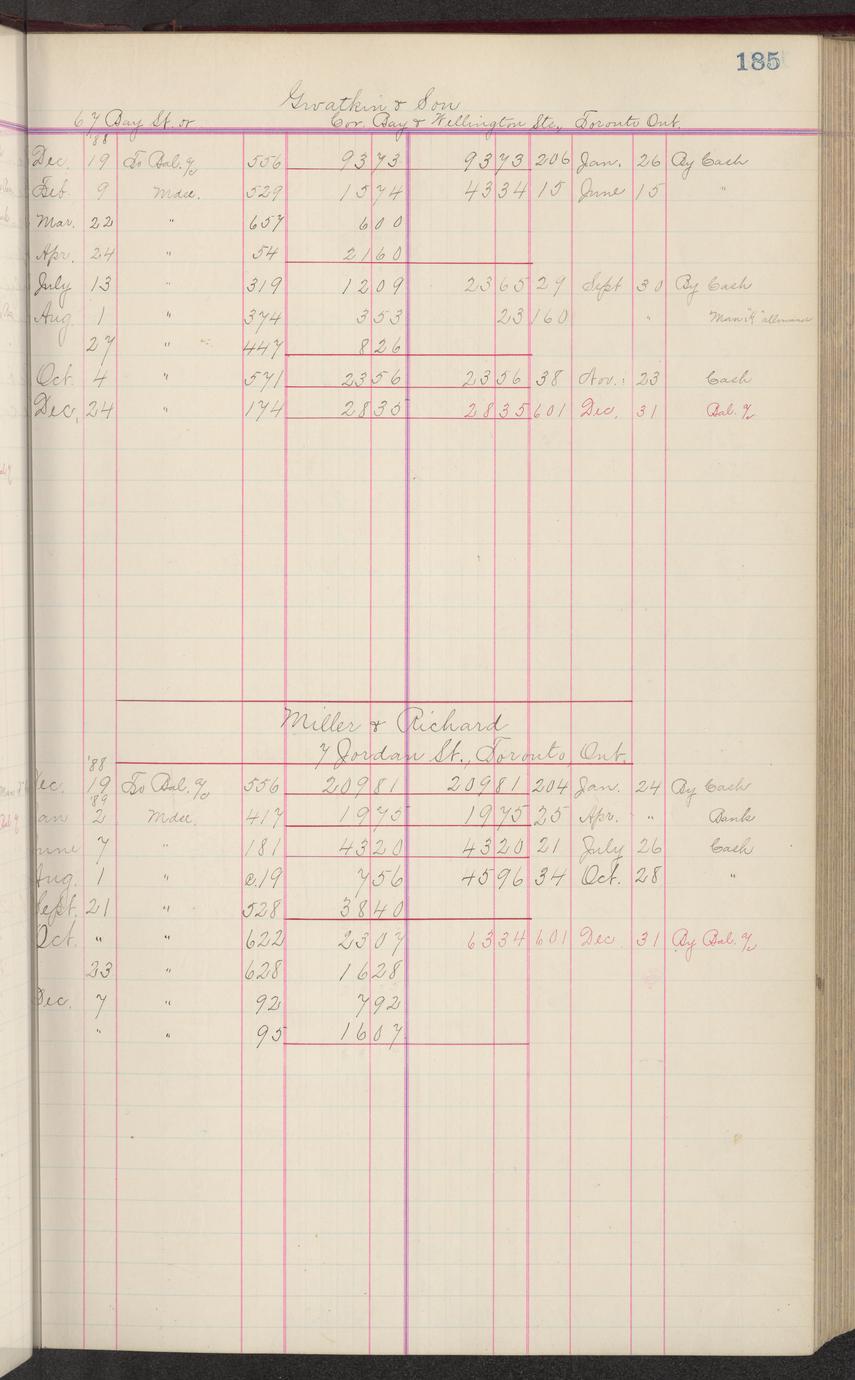 185
Gwatkin & Son
67 Bay St. or Cor. Bay & Wellington Sts., Toronto Ont.
'88
Dec. 19 To Bal. % 556 93 73 93 73 206 Jan. 26 By Cash
Feb 9 Mdse. 529 15 74 43 34 15 June 15 "
Mar. 22 " 657 6 00
Apr. 24 " 54 21 60
July 13 " 319 12 09 23 65 29 Sept 30 By Cash
Aug 1 " 374 3 53 23 160 "
27 " 447 8 26
Oct. 4 " 571 23 56 23 56 38 Nov. 23 Cash
Dec. 24 " 174 28 35 28 35 601 Dec. 31 Bal. %
Miller & Richard
7 Jordan St., Toronto, Ont.
'88
Dec. 19 To Bal. % 556 209 81 209 81 204 Jan. 24 By Cash
'89
Jan 2 Mdse. 417 19 75 19 75 25 Apr. " Bank
June 7 " 181 43 20 43 20 21 July 26 Cash
Aug. 1 " c.19 7 56 45 96 34 Oct. 28 "
Sept. 21 " 528 38 40
Oct. " " 622 23 07 63 34 601 Dec 31 By Bal. %
23 " 628 16 28
Dec. 7 " 92 7 92
" " 95 16 07